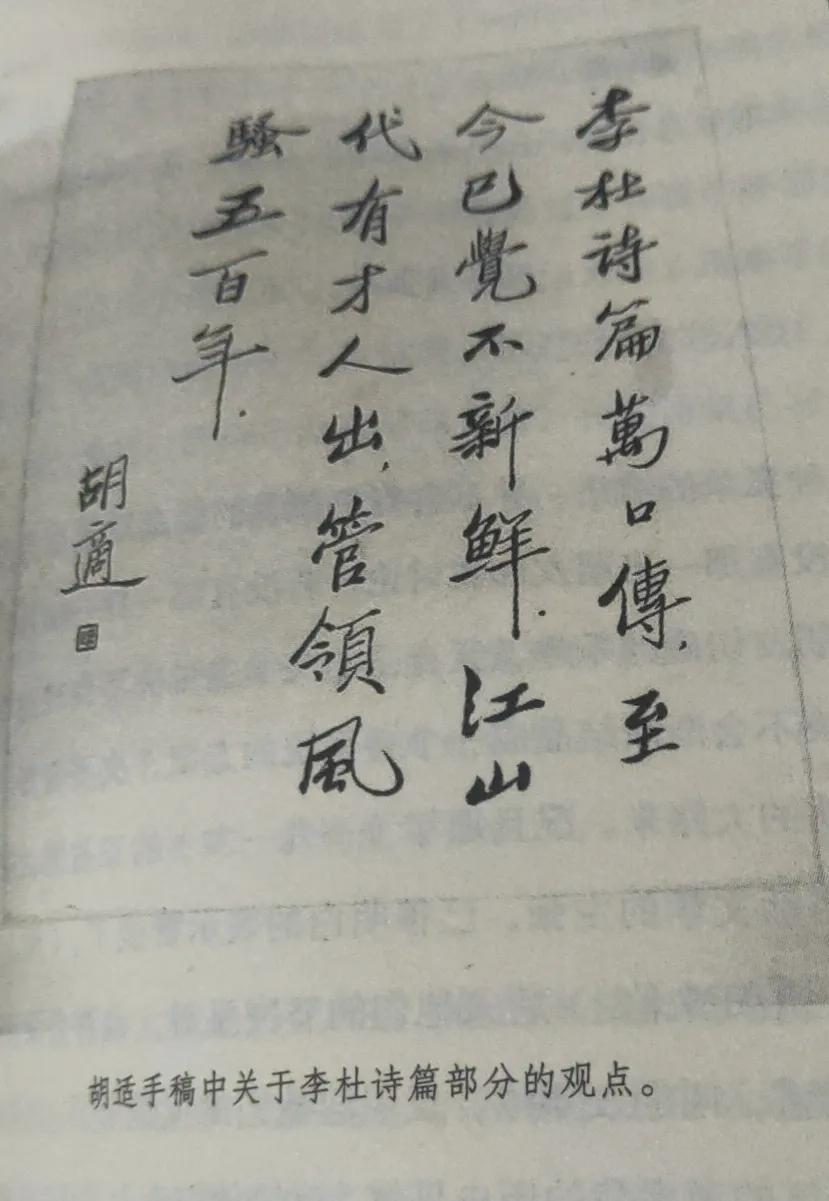 李杜诗篇萬口傳,至
今已覺不新鮮.江山
代有才人出,管領風
騷五百年.
胡適
胡适手稿中关于李杜诗篇部分的观点。